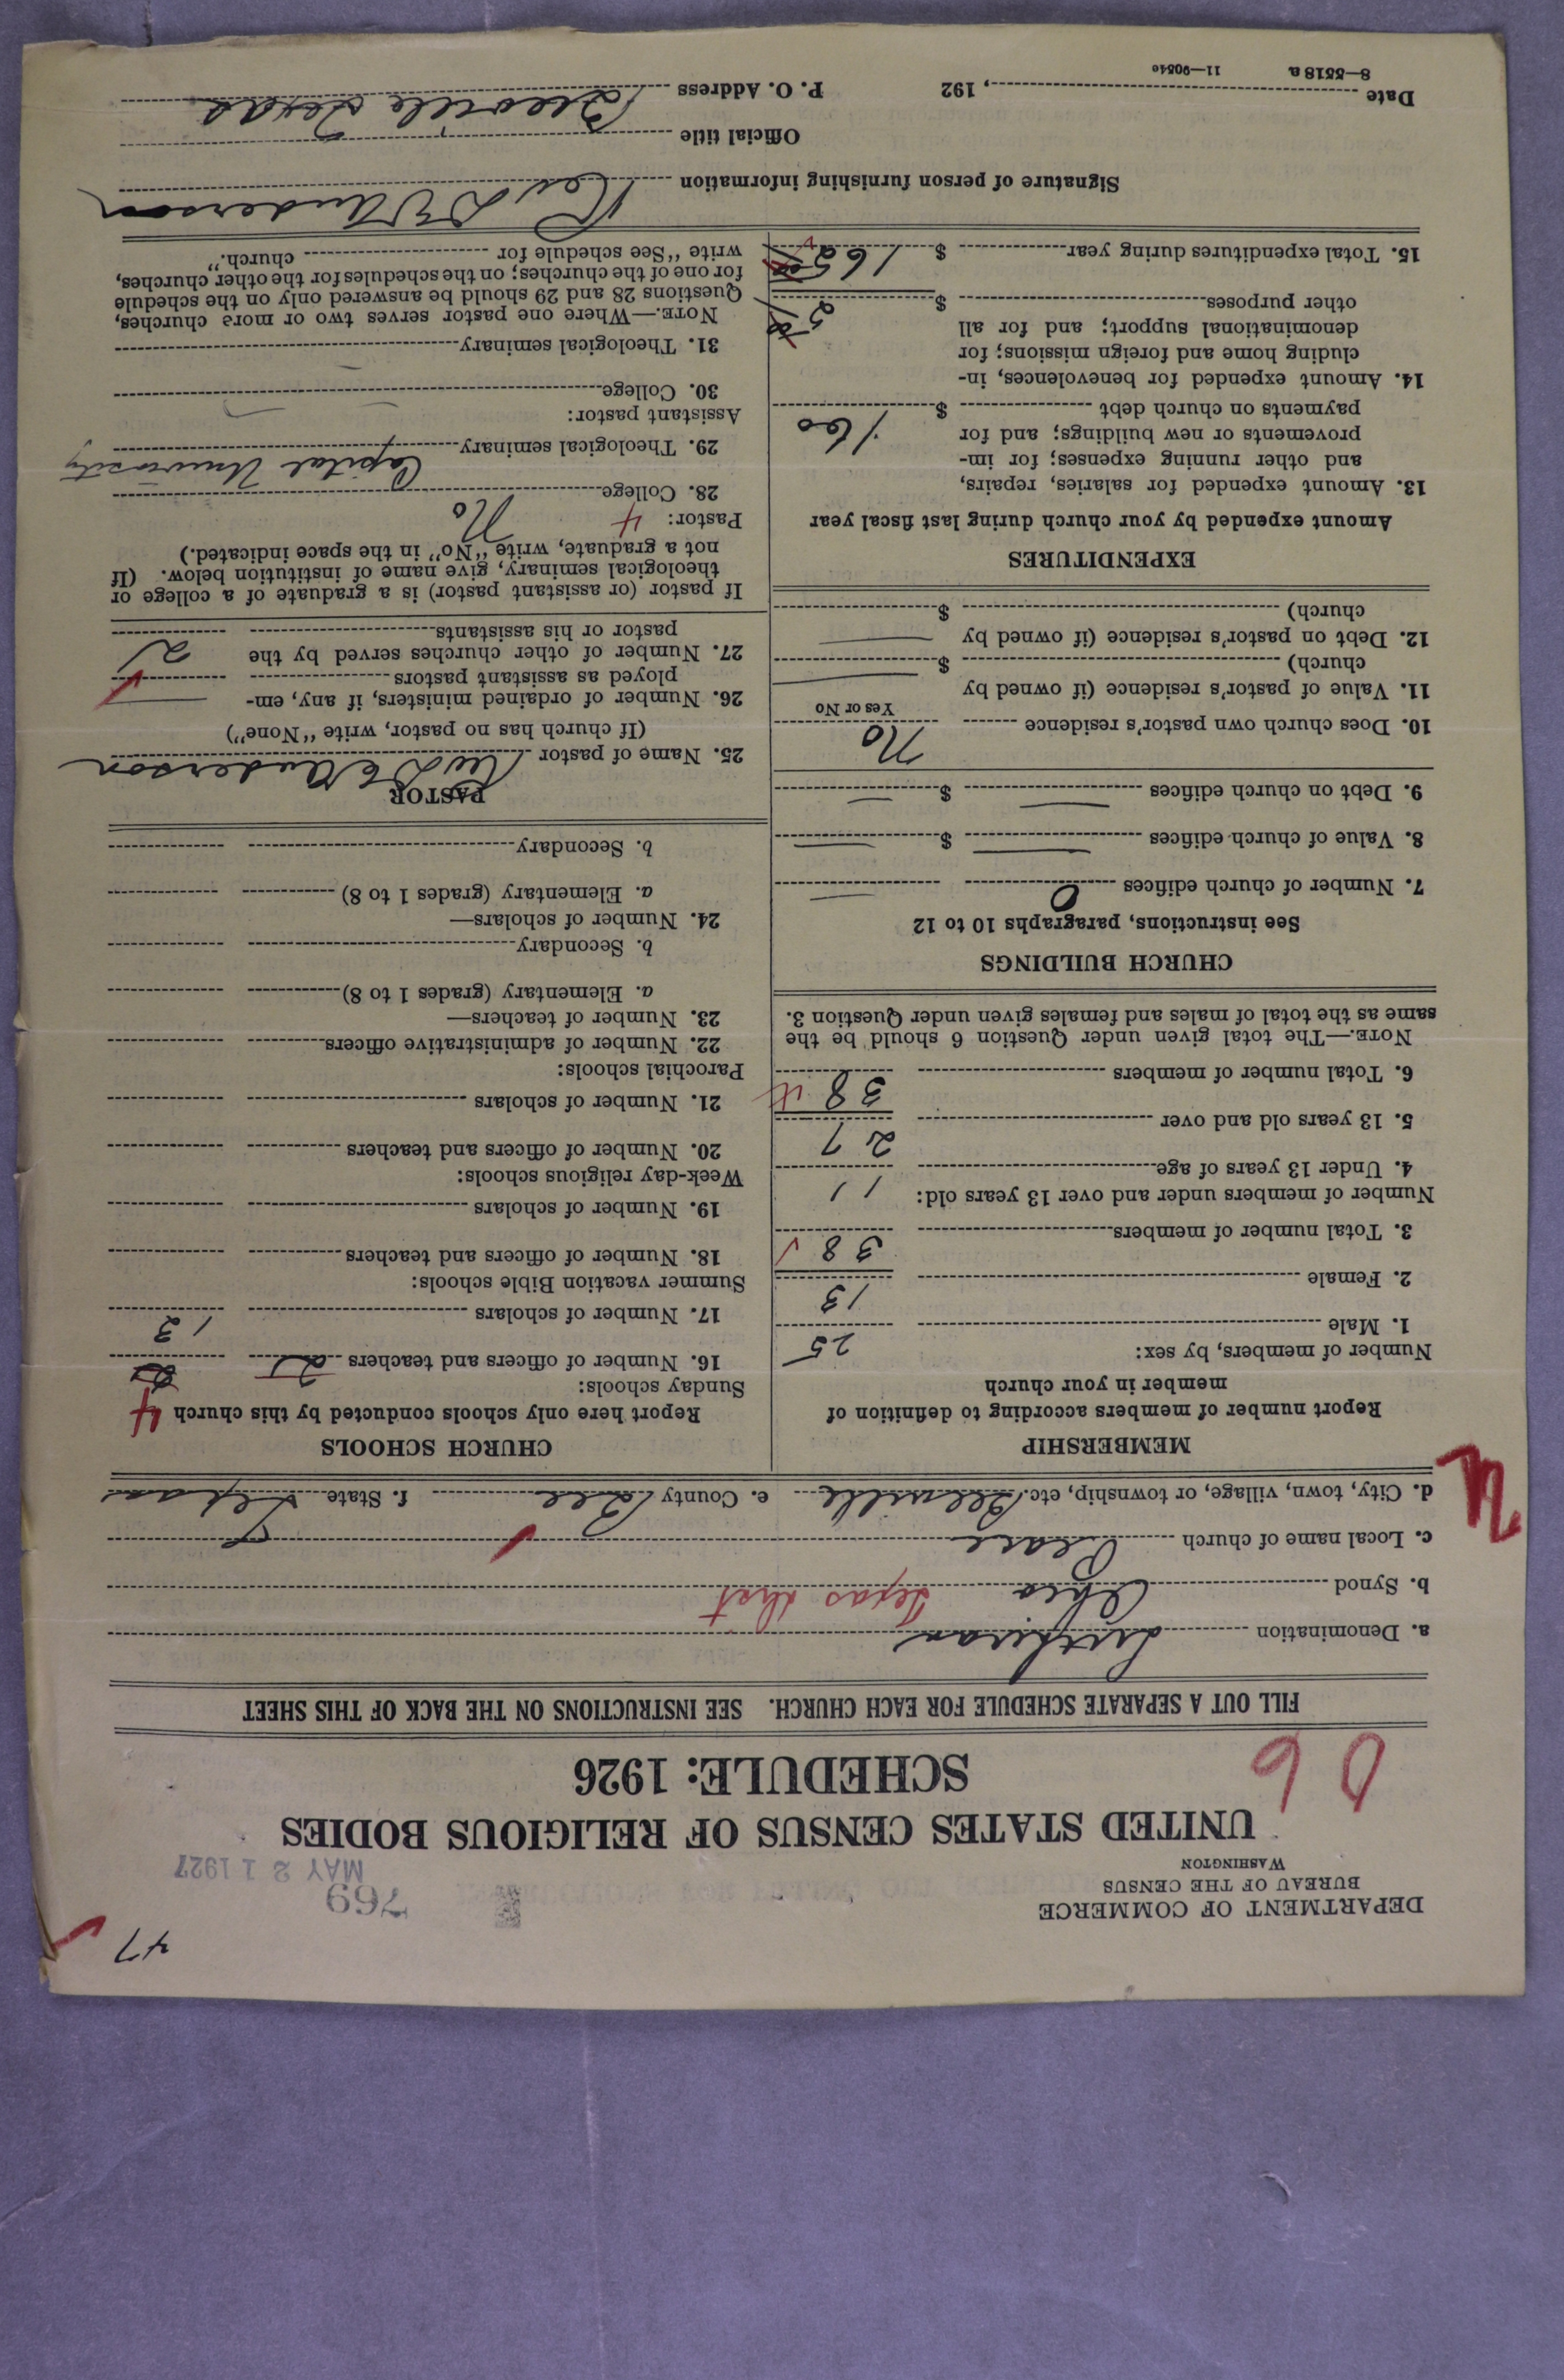 47
DEPARTMENT OF COMMERCE
BUREAU OF THE CENSUS
WASHINGTON
769
MAY 21 1927
UNITED STATES CENSUS OF RELIGIOUS BODIES
SCHEDULE: 1926
FILL OUT A SEPARATE SCHEDULE FOR EACH CHURCH. SEE INSTRUCTIONS ON THE BACK OF THIS SHEET
a. Denomination Lutheran
b. Synod Ohio Texas dist
c. Local name of church Peace
d. City, town, village, or township, etc. Beeville e. County Bee f. State Texas
MEMBERSHIP
Report number of members according to definition of
member in your church
Number of members, by sex:
1. Male 25
2. Female 13
3. Total number of members 38
Number of members under and over 13 years old:
4. Under 13 years of age 11
5. 13 years old and over 27
6. Total number of members 38
NOTE.—The total given under Question 6 should be the
same as the total of males and females given under Question 3.
CHURCH BUILDINGS
See instructions, paragraphs 10 to 12
7. Number of church edifices 0
8. Value of church edifices $
9. Debt on church edifices $
10. Does church own pastor's residence No
Yes or No
11. Value of pastor's residence (if owned by
church) $
12. Debt on pastor's residence (if owned by
church) $
EXPENDITURES
Amount expended by your church during last fiscal year
13. Amount expended for salaries, repairs,
and other running expenses; for im-
provements or new buildings; and for
payments on church debt $ 160
14. Amount expended for benevolences, in-
cluding home and foreign missions; for
denominational support; and for all
other purposes $
15. Total expenditures during year $
CHURCH SCHOOLS
Report here only schools conducted by this church 4
Sunday schools:
16. Number of officers and teachers 2
17. Number of scholars 12
Summer vacation Bible schools:
18. Number of officers and teachers
19. Number of scholars
Week-day religious schools:
20. Number of officers and teachers
21. Number of scholars
Parochial schools:
22. Number of administrative officers
23. Number of teachers—
a. Elementary (grades 1 to 8)
b. Secondary
24. Number of scholars—
a. Elementary (grades 1 to 8)
b. Secondary
PASTOR
25. Name of pastor Rev Anderson
(If church has no pastor, write "None")
26. Number of ordained ministers, if any, em-
ployed as assistant pastors
27. Number of other churches served by the
pastor or his assistants 2
If pastor (or assistant pastor) is a graduate of a college or
theological seminary, give name of institution below. (If
not a graduate, write "No" in the space indicated.)
Pastor: 4
28. College No
29. Theological seminary Capital University
Assistant pastor:
30. College
31. Theological seminary
NOTE.—Where one pastor serves two or more churches,
Questions 28 and 29 should be answered only on the schedule
for one of the churches; on the schedules for the other churches,
write "See schedule for church."
Signature of person furnishing information Rev Anderson
Official title
Date , 192 P. O. Address Beeville Texas
8—5518 a 11—9054c